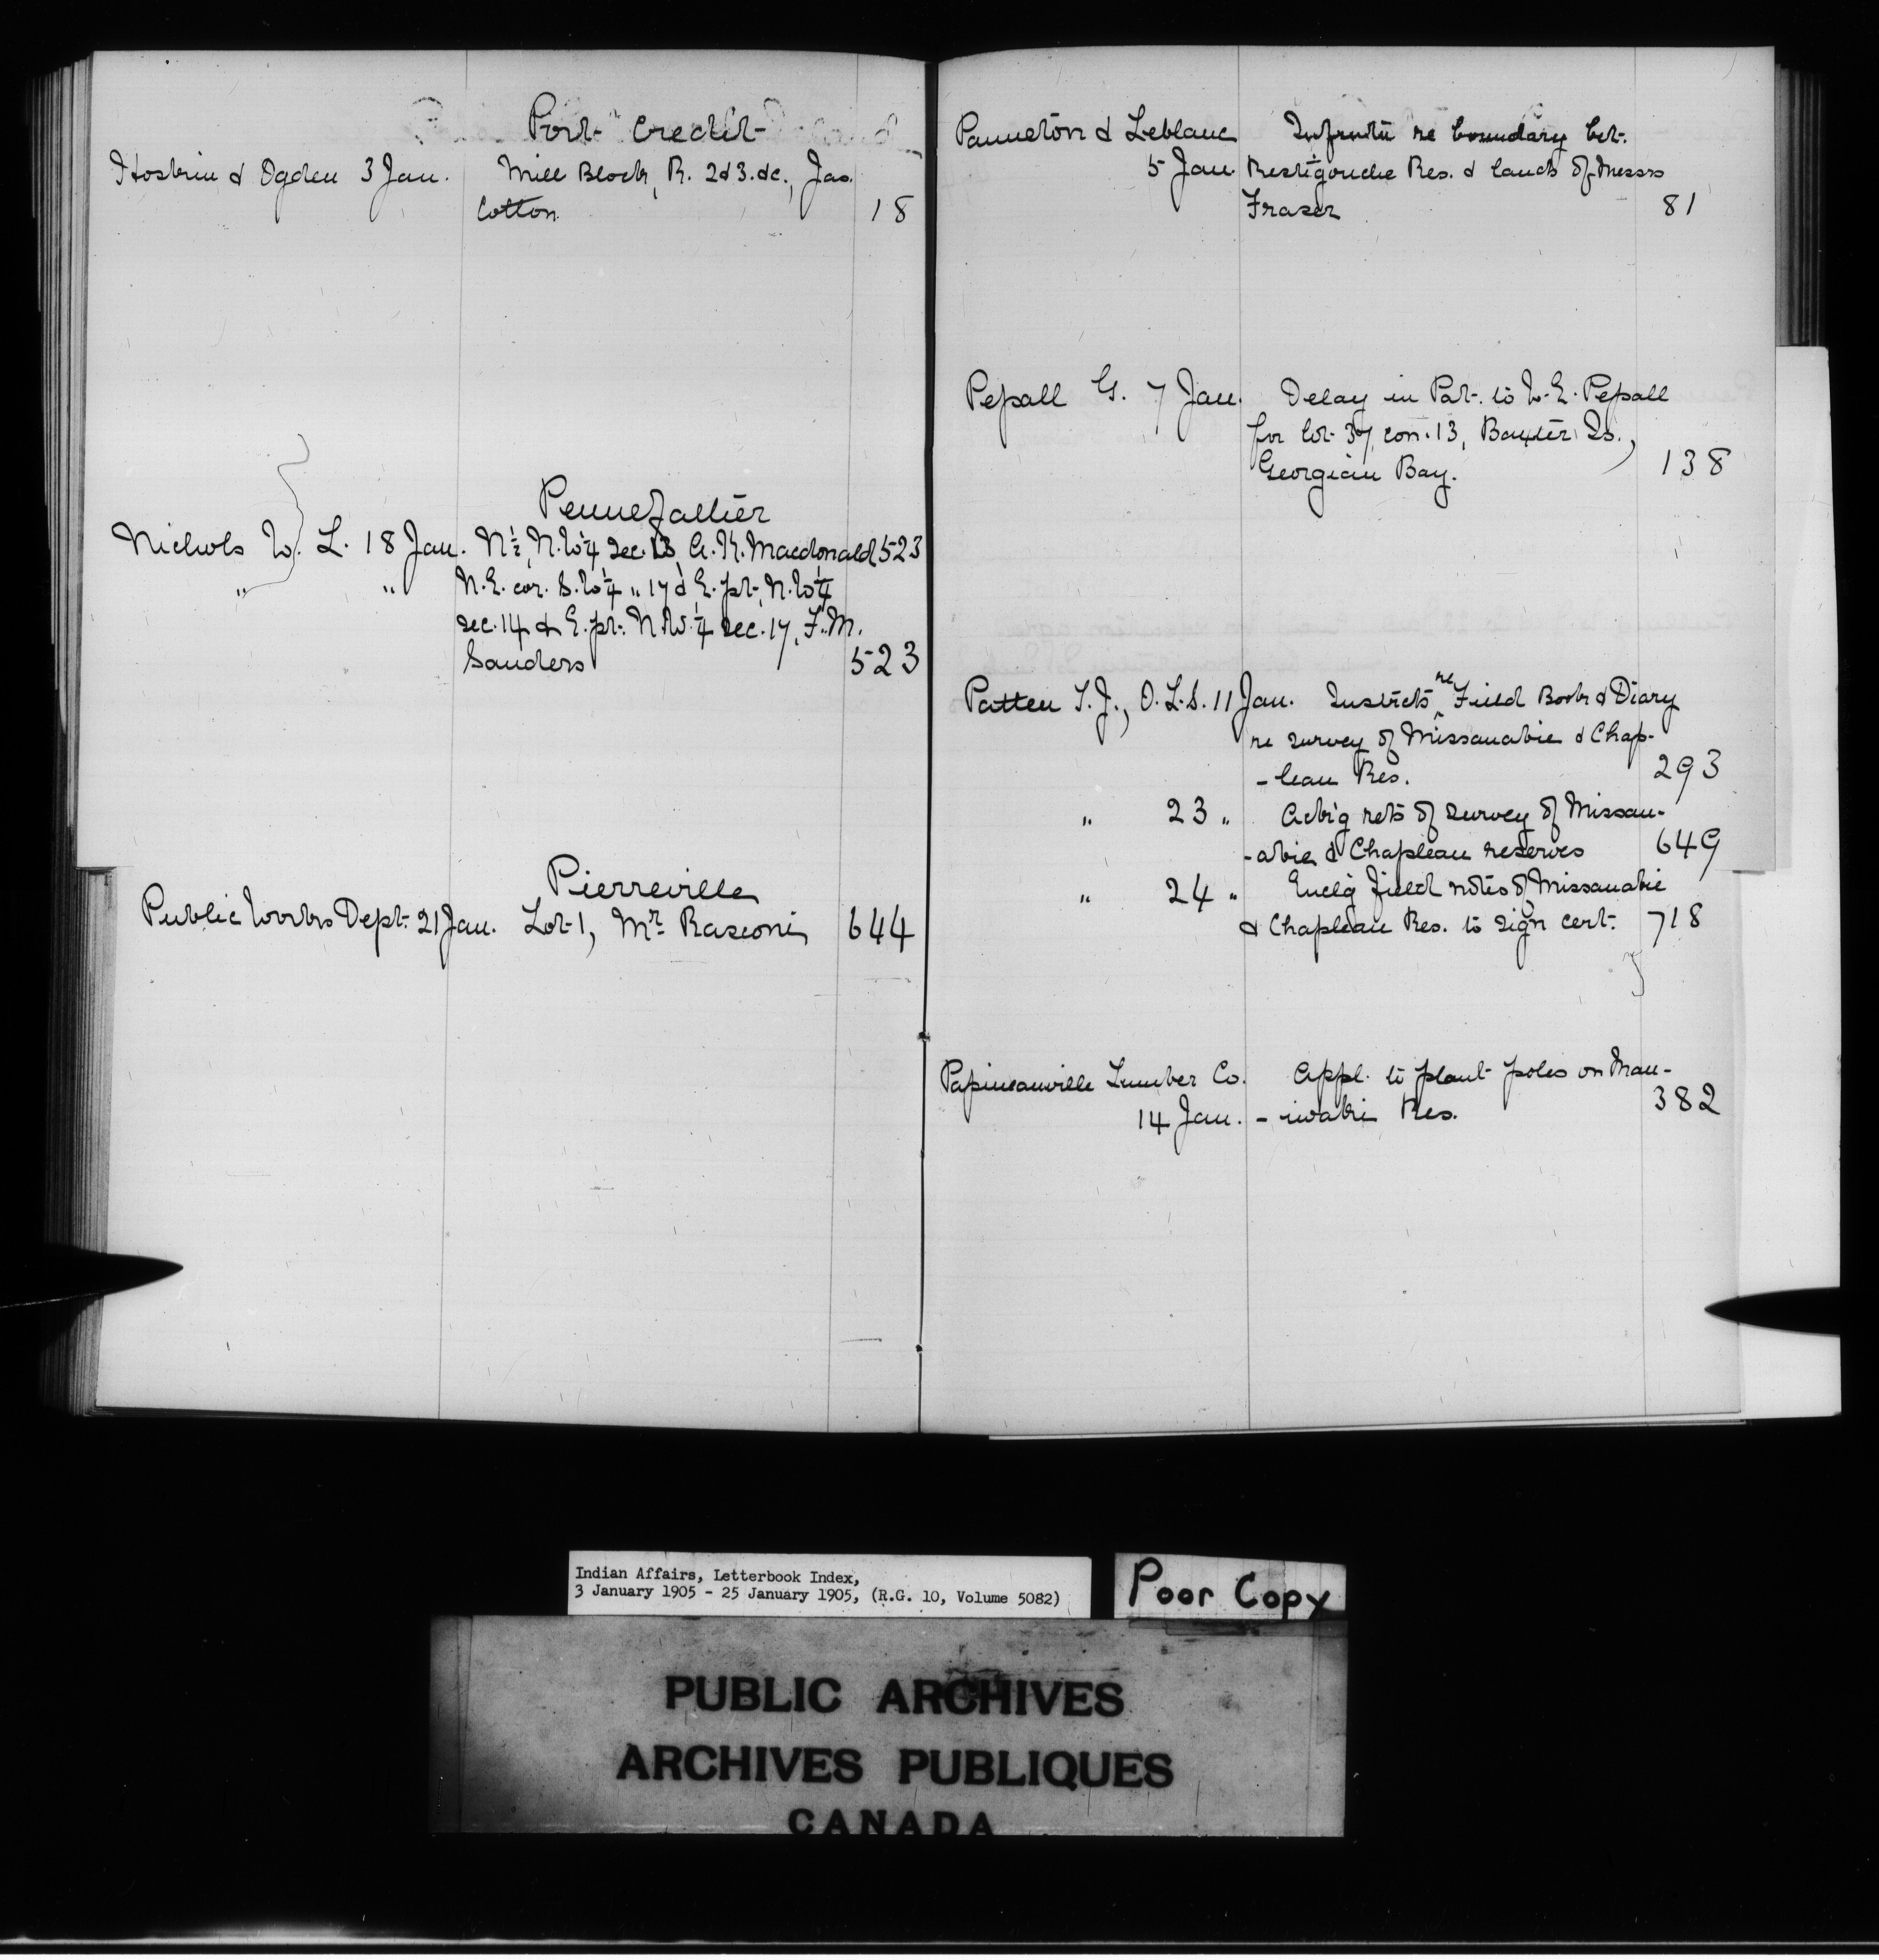 Port Credit
Hoskin & Ogden 3 Jan. Mill Block, R. 2 & 3. &c., Jas.
Cotton 18
Pennefather
Nichols W. L. 18 Jan. N½, N.W¼ Sec. 13, A. K. Macdonald 523
" " N.E. cor. S.W¼ " 17 & E. pt. N.W¼
Sec. 14 & E. pt. N.W.¼ Sec. 17, F. M.
Sanders 523
Pierreville
Public Works Dept. 21 Jan. Lot 1, Mr. Rasconi 644
Panneton & Leblanc Informtn re boundary bet.
5 Jan. Restigouche Res. & lands of Messrs
Fraser 81
Pepall G. 7 Jan. Delay in Pat. to W. E. Pepall
for lot 37, con. 13, Baxter Is.,
Georgian Bay. 138
Patten T. J., O.L.S. 11 Jan. Instrcts re Field Book & Diary
re survey of Missanabie & Chap-
-leau Res. 293
" 23 " Ack'g rets of survey of Missan-
-abie & Chapleau reserves 649
" 24 " Encl'g field notes of Missanabie
& Chapleau Res. to sign cert. 718
Papineauville Lumber Co. Appl. to plant poles on Man-
14 Jan. -iwaki Res. 382
Indian Affairs, Letterbook Index,
3 January 1905 - 25 January 1905, (R.G. 10, Volume 5082)
Poor Copy
PUBLIC ARCHIVES
ARCHIVES PUBLIQUES
CANADA